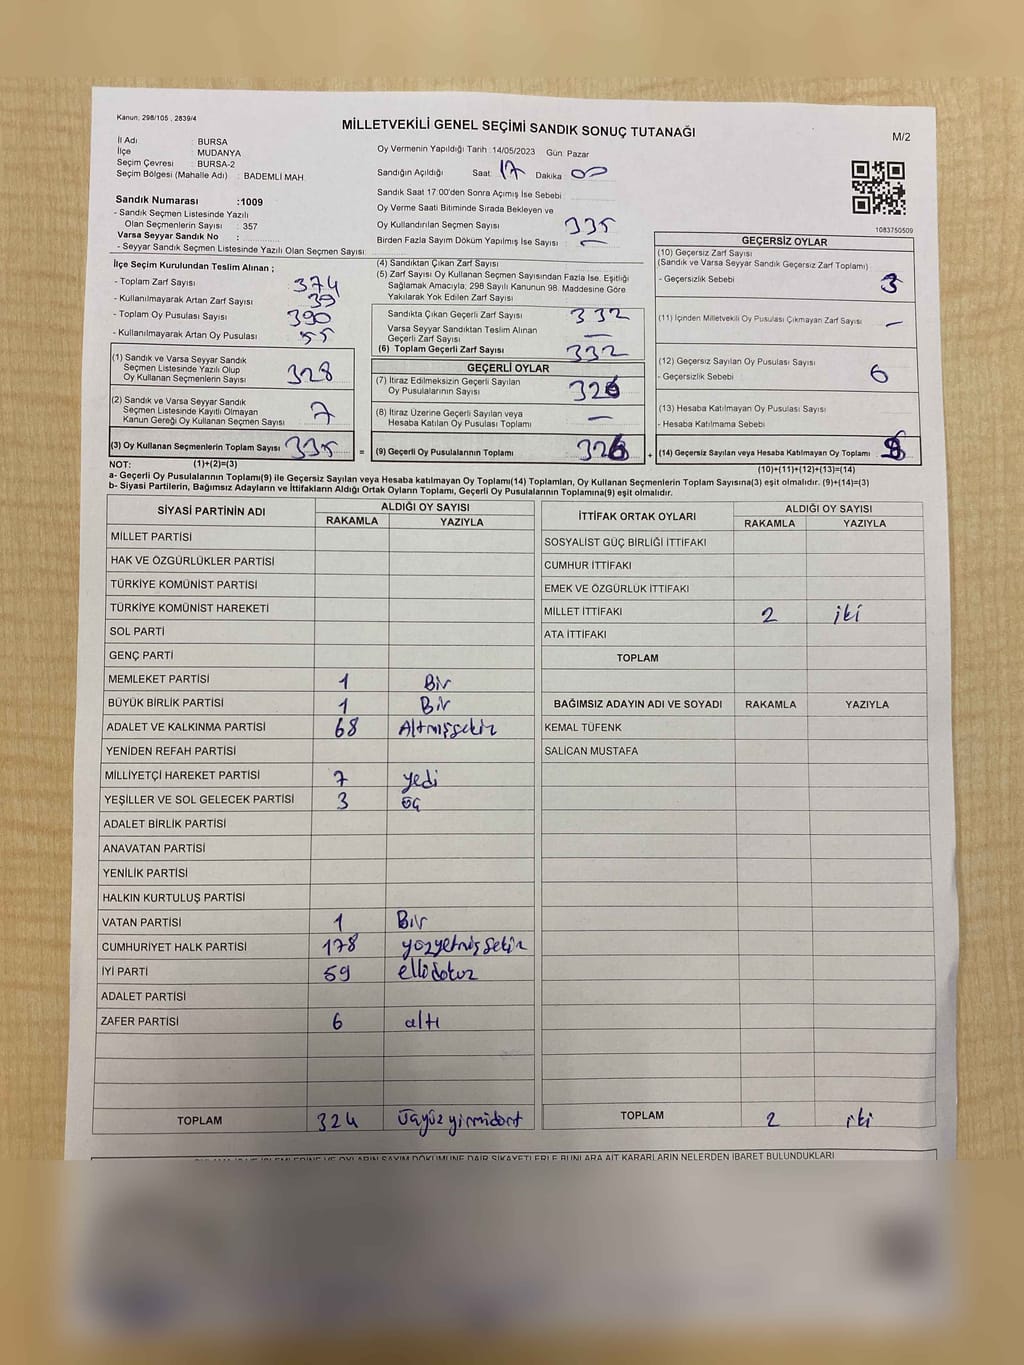 Kanun; 298/105 , 2839/4
MİLLETVEKİLİ GENEL SEÇİMİ SANDIK SONUÇ TUTANAĞI
M/2
İl Adı : BURSA
İlçe : MUDANYA
Seçim Çevresi : BURSA-2
Seçim Bölgesi (Mahalle Adı) : BADEMLİ MAH.
Oy Vermenin Yapıldığı Tarih :14/05/2023 Gün Pazar
Sandığın Açıldığı Saat 17 Dakika 00
Sandık Saat 17.00'den Sonra Açımış İse Sebebi
Oy Verme Saati Bitiminde Sırada Bekleyen ve
Oy Kullandırılan Seçmen Sayısı 335
Birden Fazla Sayım Döküm Yapılmış İse Sayısı : —
Sandık Numarası :1009
- Sandık Seçmen Listesinde Yazılı
Olan Seçmenlerin Sayısı : 357
Varsa Seyyar Sandık No :
- Seyyar Sandık Seçmen Listesinde Yazılı Olan Seçmen Sayısı:
1083750509
İlçe Seçim Kurulundan Teslim Alınan ;
- Toplam Zarf Sayısı : 374
- Kullanılmayarak Artan Zarf Sayısı : 39
- Toplam Oy Pusulası Sayısı : 390
- Kullanılmayarak Artan Oy Pusulası : 55
(1) Sandık ve Varsa Seyyar Sandık
Seçmen Listesinde Yazılı Olup
Oy Kullanan Seçmenlerin Sayısı 328
(2) Sandık ve Varsa Seyyar Sandık
Seçmen Listesinde Kayıtlı Olmayan
Kanun Gereği Oy Kullanan Seçmen Sayısı 7
(3) Oy Kullanan Seçmenlerin Toplam Sayısı 335
(4) Sandıktan Çıkan Zarf Sayısı
(5) Zarf Sayısı Oy Kullanan Seçmen Sayısından Fazla İse, Eşitliği
Sağlamak Amacıyla; 298 Sayılı Kanunun 98. Maddesine Göre
Yakılarak Yok Edilen Zarf Sayısı
Sandıkta Çıkan Geçerli Zarf Sayısı 332
Varsa Seyyar Sandıktan Teslim Alınan
Geçerli Zarf Sayısı —
(6) Toplam Geçerli Zarf Sayısı 332
GEÇERLİ OYLAR
(7) İtiraz Edilmeksizin Geçerli Sayılan
Oy Pusulalarının Sayısı 326
(8) İtiraz Üzerine Geçerli Sayılan veya
Hesaba Katılan Oy Pusulası Toplamı —
= (9) Geçerli Oy Pusulasının Toplamı 326 +
GEÇERSİZ OYLAR
(10) Geçersiz Zarf Sayısı
(Sandık ve Varsa Seyyar Sandık Geçersiz Zarf Toplamı)
- Geçersizlik Sebebi 3
(11) İçinden Milletvekili Oy Pusulası Çıkmayan Zarf Sayısı —
(12) Geçersiz Sayılan Oy Pusulası Sayısı
- Geçersizlik Sebebi 6
(13) Hesaba Katılmayan Oy Pusulası Sayısı
- Hesaba Katılmama Sebebi
(14) Geçersiz Sayılan veya Hesaba Katılmayan Oy Toplamı
NOT: (1)+(2)=(3)
(10)+(11)+(12)+(13)=(14)
a- Geçerli Oy Pusulalarının Toplamı(9) ile Geçersiz Sayılan veya Hesaba katılmayan Oy Toplamı(14) Toplamları, Oy Kullanan Seçmenlerin Toplam Sayısına(3) eşit olmalıdır. (9)+(14)=(3)
b- Siyasi Partilerin, Bağımsız Adayların ve İttifakların Aldığı Ortak Oyların Toplamı, Geçerli Oy Pusulalarının Toplamına(9) eşit olmalıdır.
SİYASİ PARTİNİN ADI ALDIĞI OY SAYISI
RAKAMLA YAZIYLA
MİLLET PARTİSİ
HAK VE ÖZGÜRLÜKLER PARTİSİ
TÜRKİYE KOMÜNİST PARTİSİ
TÜRKİYE KOMÜNİST HAREKETİ
SOL PARTİ
GENÇ PARTİ
MEMLEKET PARTİSİ 1 Bir
BÜYÜK BİRLİK PARTİSİ 1 Bir
ADALET VE KALKINMA PARTİSİ 68 Altmışsekiz
YENİDEN REFAH PARTİSİ
MİLLİYETÇİ HAREKET PARTİSİ 7 yedi
YEŞİLLER VE SOL GELECEK PARTİSİ 3 üç
ADALET BİRLİK PARTİSİ
ANAVATAN PARTİSİ
YENİLİK PARTİSİ
HALKIN KURTULUŞ PARTİSİ
VATAN PARTİSİ 1 Bir
CUMHURİYET HALK PARTİSİ 178 yüzyetmişsekiz
İYİ PARTİ 59 ellidokuz
ADALET PARTİSİ
ZAFER PARTİSİ 6 altı
TOPLAM 324 üçyüzyirmidört
İTTİFAK ORTAK OYLARI ALDIĞI OY SAYISI
RAKAMLA YAZIYLA
SOSYALİST GÜÇ BİRLİĞİ İTTİFAKI
CUMHUR İTTİFAKI
EMEK VE ÖZGÜRLÜK İTTİFAKI
MİLLET İTTİFAKI 2 iki
ATA İTTİFAKI
TOPLAM
BAĞIMSIZ ADAYIN ADI VE SOYADI RAKAMLA YAZIYLA
KEMAL TÜFENK
SALİCAN MUSTAFA
TOPLAM 2 iki
SAYIM DÖKÜMÜNE DAİR ŞİKAYETLERLE BUNLARA AİT KARARLARIN NELERDEN İBARET BULUNDUKLARI